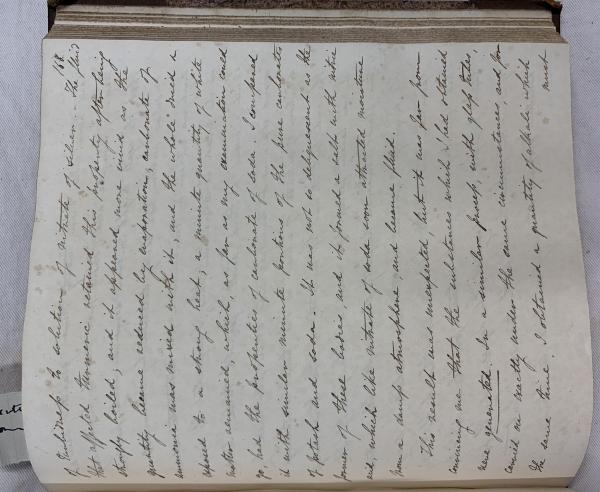 168
of turbidness to solution of nitrate of silver. The fluid
that affected turmeric retained this property after being
strongly boiled; and it appeared more vivid as the
quantity became reduced by evaporation; carbonate of
ammonia was mixed with it, and the whole dried and
exposed to a strong heat; a minute quantity of white
matter remained, which, as far as my examination could
go, had the properties of carbonate of soda. I compared
it with similar minute portions of the pure carbonates
of potash and soda. It was not so deliquescent as the
former of these bodies and it formed a salt with nitric
acid, which like nitrate of soda soon attracted moisture
from a damp atmosphere, and became fluid.
This result was unexpected, but it was far from
convincing me that the substances which I had obtained
were generated. In a similar process, with glass tubes,
carried on exactly under the same circumstances, and for
the same time, I obtained a quantity of alkali, which
must